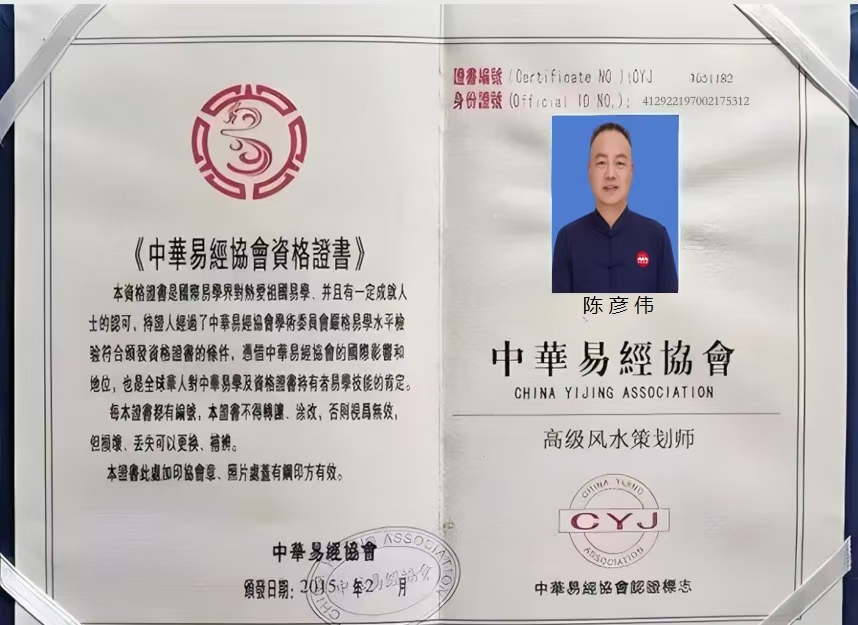 《中華易經協會資格證書》
本資格證書是國際易學界對熱愛祖國易學、并且有一定成就人
士的認可，持證人經過了中華易經協會學術委員會嚴格易學水平檢
驗符合頒發資格證書的條件，憑借中華易經協會的國際影響和
地位，也是全球華人對中華易學及資格證書持有者易學技能的肯定。
每本證書都有編號，本證書不得轉讓、涂改，否則視爲無效，
但損壞、丟失可以更换、補辦。
本證書此處加印協會章、照片處蓋有鋼印方有效。
中華易經協會
頒發日期：2015 年2 月
CHINA YIJING ASSOCIATION
中华易經協會
證書編號 (Certificate NO.):CYJ
身份證號 (Official ID NO.): 412922197002175312
陈彦伟
中華易經協會
CHINA YIJING ASSOCIATION
高级风水策划师
CHINA YIJING
CYJ
ASSOCIATION
中華易經協會認證標志